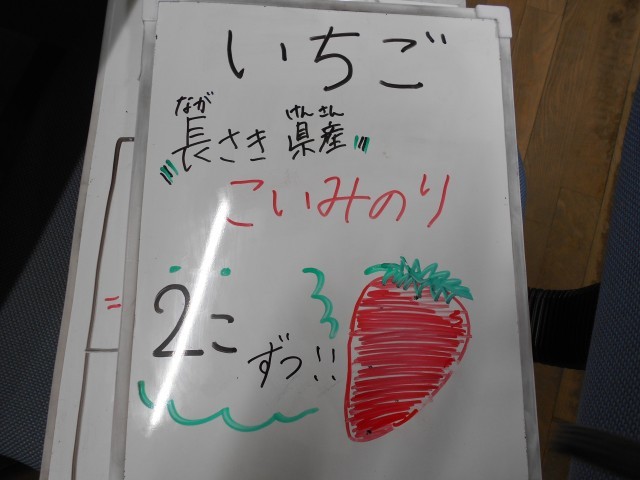 いちご
なが けんさん
長さき県産
こいみのり
2こ
ずつ!!